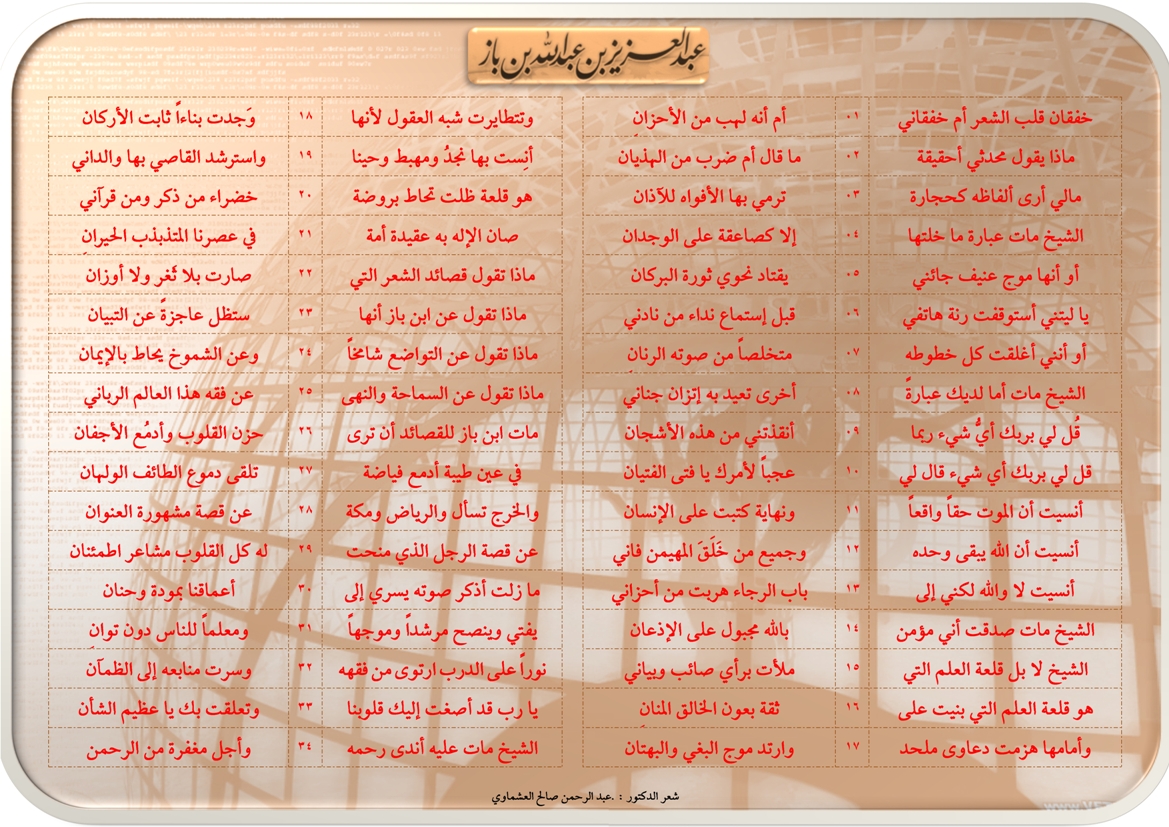 عبدالعزيز بن عبدالله بن باز
خفقان قلب الشعر أم خفقاني ٠١ أم أنه لهب من الأحزانِ
ماذا يقول محدثي أحقيقة ٠٢ ما قال أم ضرب من الهذيان
مالي أرى ألفاظه كحجارة ٠٣ ترمي بها الأفواه للآذان
الشيخ مات عبارة ما خلتها ٠٤ إلا كصاعقة على الوجدان
أو أنها موج عنيف جائني ٠٥ يقتاد نحوي ثورة البركان
يا ليتني أستوقفت رنة هاتفي ٠٦ قبل إستماع نداء من نادني
أو أنني أغلقت كل خطوطه ٠٧ متخلصاً من صوته الرنانِ
الشيخ مات أما لديك عبارةً ٠٨ أخرى تعيد به إتزان جناني
قُل لي بربك أيُّ شيء ربما ٠٩ أنقذتني من هذه الأشجان
قل لي بربك أي شيء قال لي ١٠ عجباً لأمرك يا فتى الفتيان
أنسيت أن الموت حقاً واقعاً ١١ ونهاية كتبت على الإنسان
أنسيت أن الله يبقى وحده ١٢ وجميع من خَلَقَ المهيمن فاني
أنسيت لا والله لكني إلى ١٣ باب الرجاء هربت من أحزاني
الشيخ مات صدقت أني مؤمن ١٤ بالله مجبول على الإذعان
الشيخ لا بل قلعة العلم التي ١٥ ملأت برأي صائب وبياني
هو قلعة العلم التي بنيت على ١٦ ثقة بعون الخالق المنانِ
وأمامها هزمت دعاوى ملحد ١٧ وارتد موج البغي والبهتان
وتتطايرت شبه العقول لأنها ١٨ وَجدت بناءاً ثابت الأركان
أنِست بها نجدُ ومهبط وحينا ١٩ واسترشد القاصي بها والداني
هو قلعة ظلت تحاط بروضة ٢٠ خضراء من ذكر ومن قرآني
صان الإله به عقيدة أمة ٢١ في عصرنا المتذبذب الحيرانِ
ماذا تقول قصائد الشعر التي ٢٢ صارت بلا ثغر ولا أوزان
ماذا تقول عن ابن باز أنها ٢٣ ستظل عاجزةً عن التبيان
ماذا تقول عن التواضع شامخاً ٢٤ وعن الشموخ يحاط بالإيمان
ماذا تقول عن السماحة والنهى ٢٥ عن فقه هذا العالم الرباني
مات ابن باز للقصائد أن ترى ٢٦ حزن القلوب وأدمُع الأجفان
في عين طيبة أدمع فياضة ٢٧ تلقى دموع الطائف الولهان
والخرج تسأل والرياض ومكة ٢٨ عن قصة مشهورة العنوان
عن قصة الرجل الذي منحت ٢٩ له كل القلوب مشاعر اطمئنان
ما زلت أذكر صوته يسري إلى ٣٠ أعماقنا بمودة وحنان
يفتي وينصح مرشداً وموجهاً ٣١ ومعلماً للناس دون توانِ
نوراً على الدرب ارتوى من فقهه ٣٢ وسرت منابعه إلى الظمآن
يا رب قد أصغت إليك قلوبنا ٣٣ وتعلقت بك يا عظيم الشأن
الشيخ مات عليه أندى رحمه ٣٤ وأجل مغفرة من الرحمن
شعر الدكتور : .عبد الرحمن صالح العشماوي